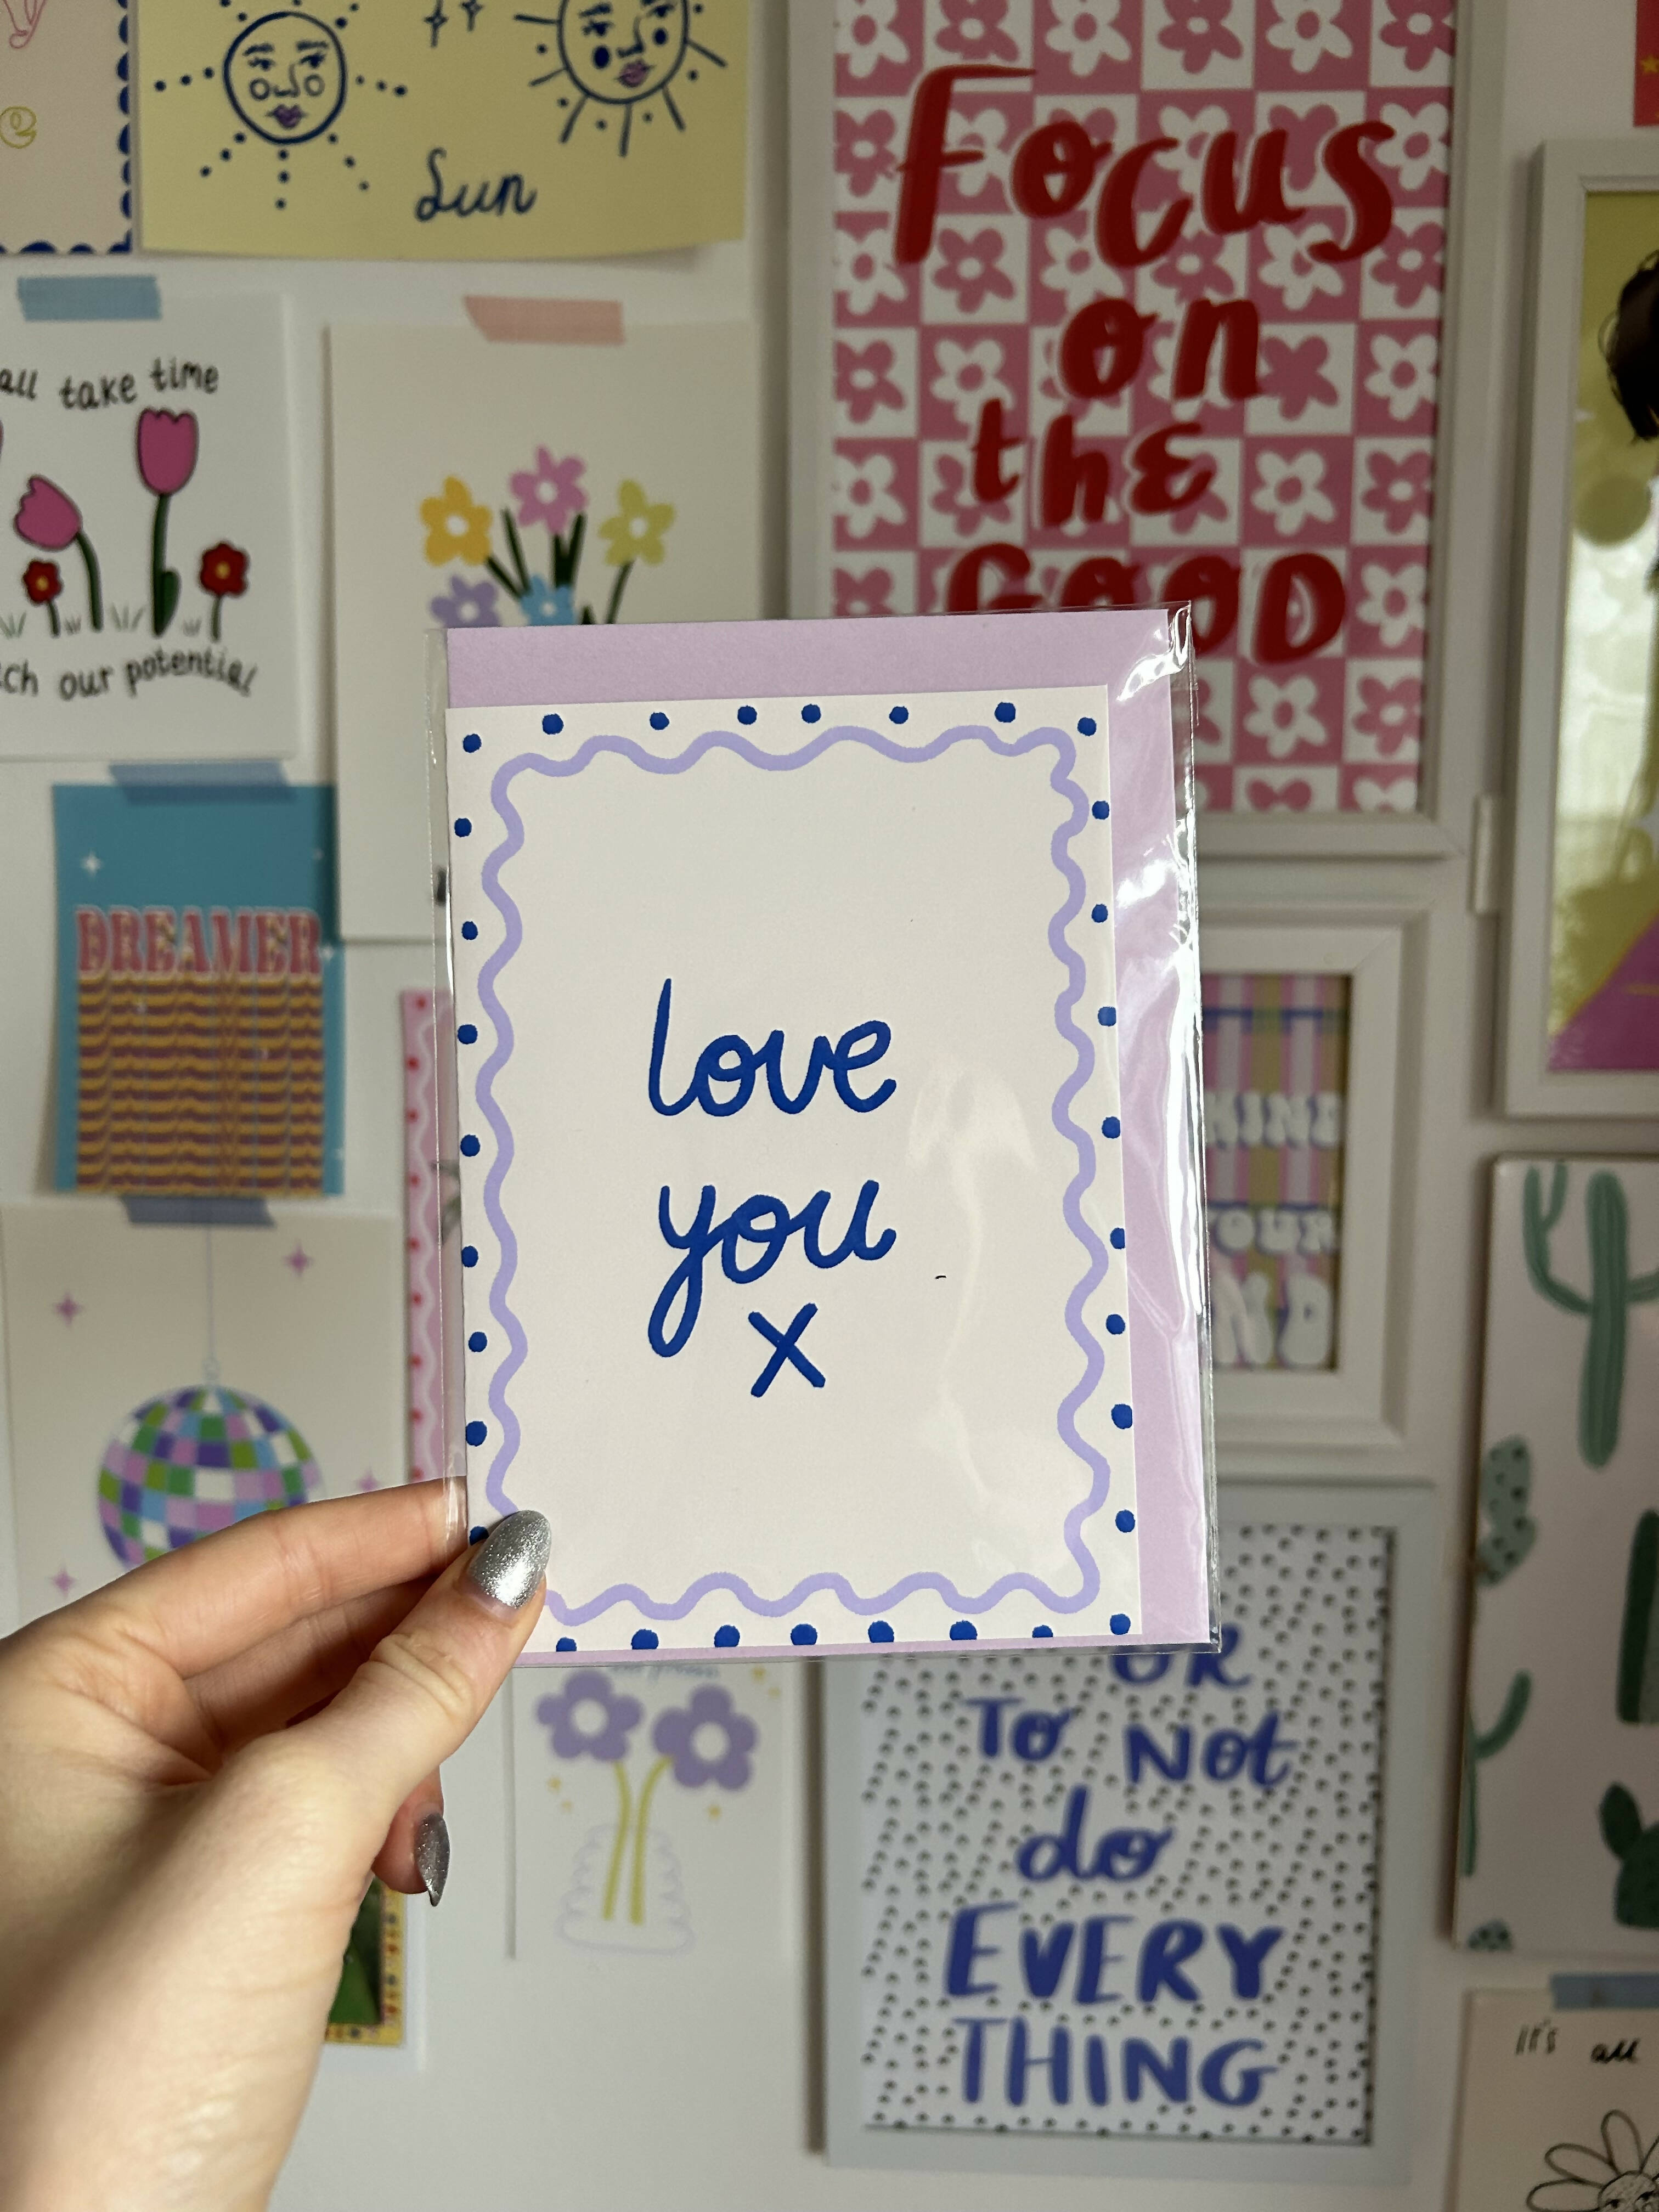 Sun
Focus
on
the
GOOD
all take time
our potential
DREAMER
love
you
x
OR
To Not
do
EVERY
THING
It's all